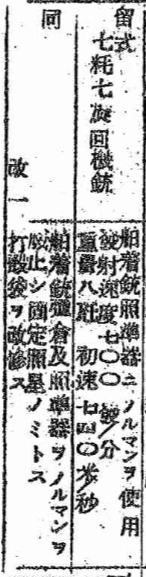 留式
七粍七旋回機銃
船着銃照準器ニノルマンヲ使用
発射速度七〇〇 発/分
重量八瓩 初速 七四〇米秒
同 改一
船着銃弾倉及照準器ヲノルマンヲ
廃止シ固定照星ノミトス
打殻袋ヲ改修ス